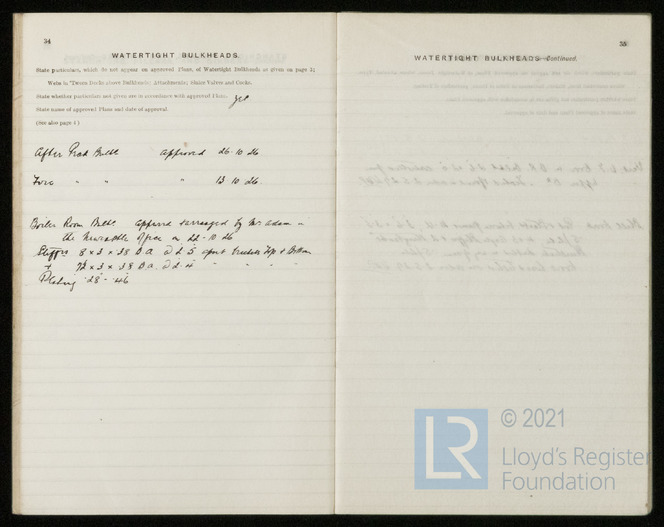 34
WATERTIGHT BULKHEADS.
State particulars, which do not appear on approved Plans, of Watertight Bulkheads as given on page 3;
Webs in 'Tween Decks above Bulkheads; Attachments; Sluice Valves and Cocks.
State whether particulars not given are in accordance with approved Plans. Yes
State name of approved Plans and date of approval.
(See also page 4)
After Peak Bulkd approved 26.10.26
Fore " " " 13 10 26.
Boiler Room Bulkd approved & arranged by Mr Adam
the Newcastle Office on 22-10 26
Stiffrs 8 x 3 x 38 B.a. 2 d 5 apart brackets Top & Bottom
7½ x 3 x 38 B.a. 2 d 4 " " "
Plating .28 - .46
35
WATERTIGHT BULKHEADS—Continued.
LR
© 2021
Lloyd's Register
Foundation